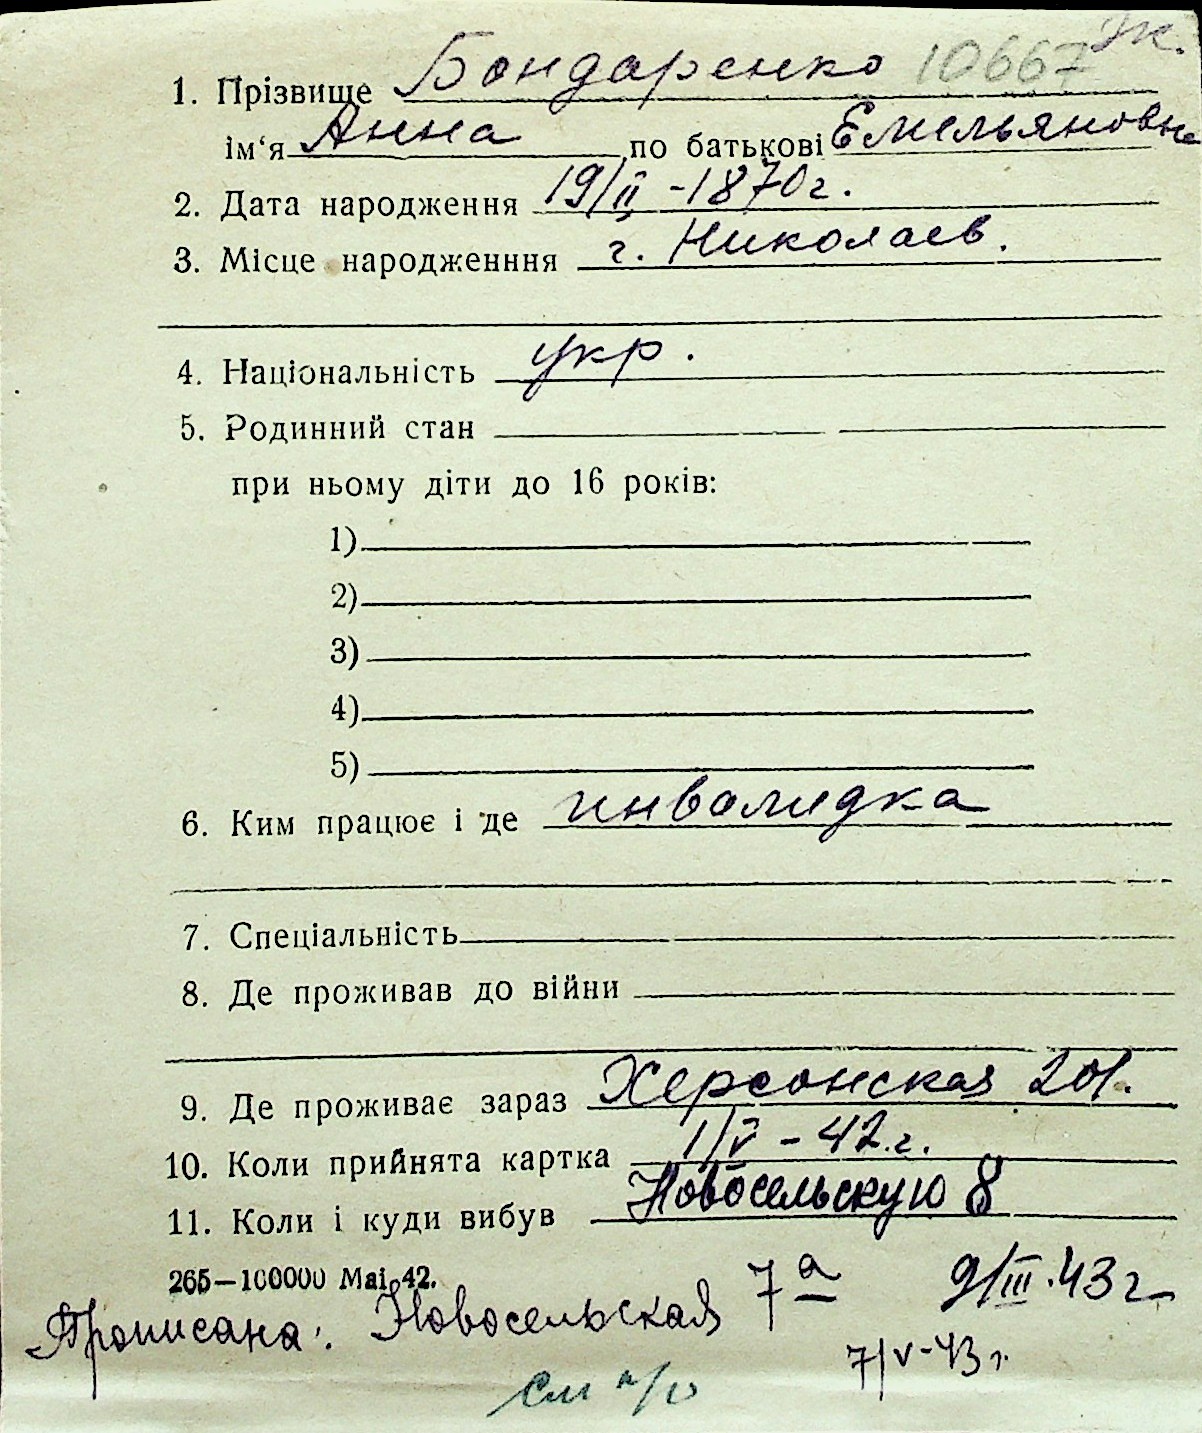 10667 Эк.
1. Прізвище Бондаренко
ім‘я Анна по батькові Емельяновна
2. Дата народження 19/II -1870г.
3. Місце народженння г. Николаев.
4. Національність укр.
5. Родинний стан
при ньому діти до 16 років:
1)
2)
3)
4)
5)
6. Ким працює і де инвалидка
7. Спеціальність
8. Де проживав до війни
9. Де проживає зараз Херсонская 201.
10. Коли прийнята картка 1/V - 42.г.
11. Коли і куди вибув Новосельскую 8
265—100000 Маі 42. 9/III.43г
Прописана: Новосельская 7а
7/V-43 г.
см н/о